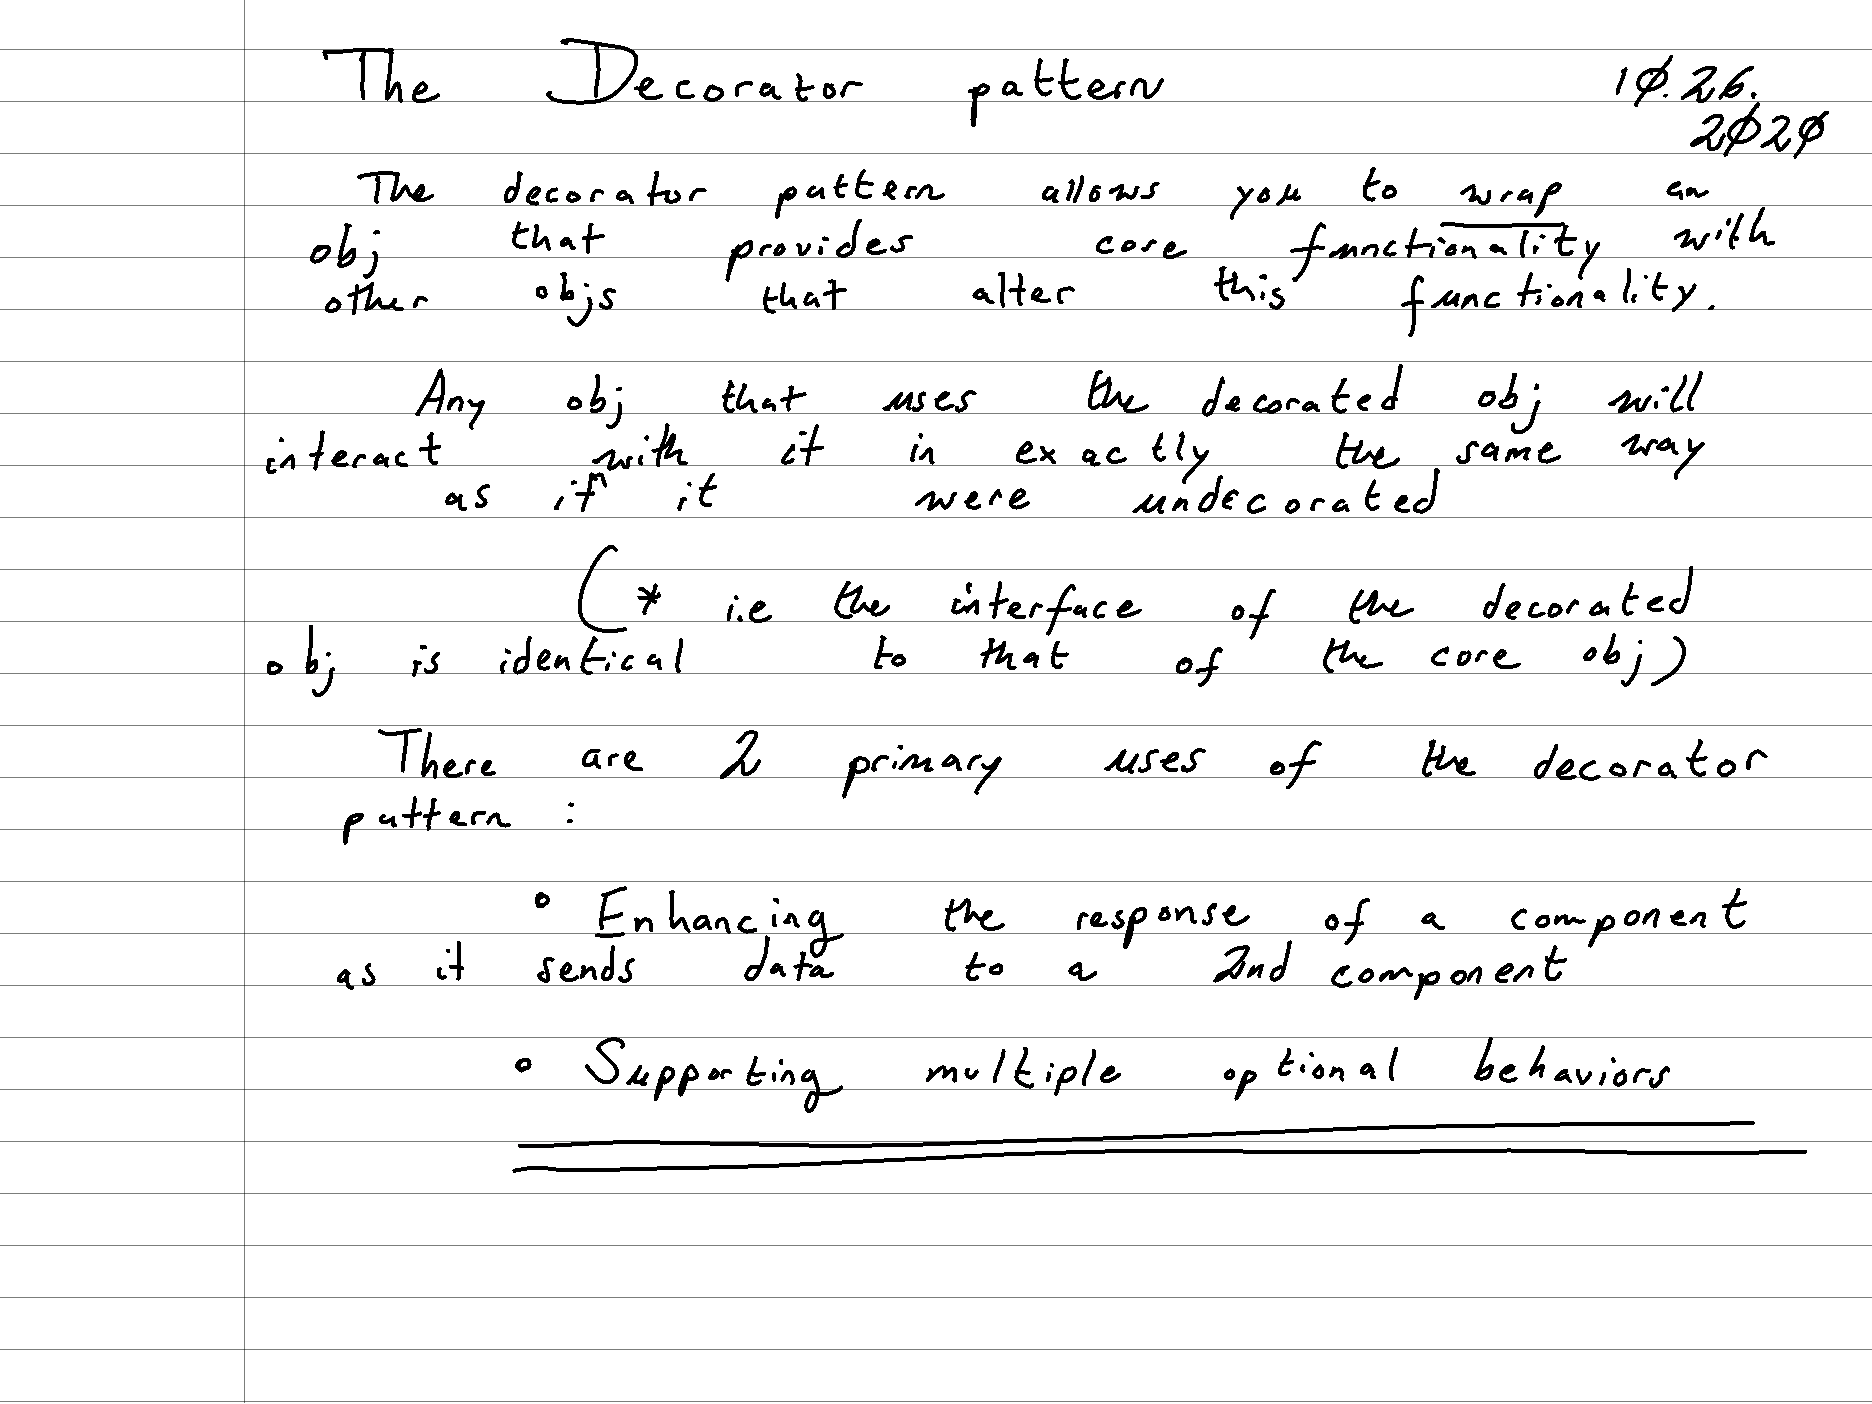 The Decorator pattern
10.26.
2020
The decorator pattern allows you to wrap an
obj that provides core functionality with
other objs that alter this functionality.
Any obj that uses the decorated obj will
interact with it in exactly the same way
as if it were undecorated
(* i.e the interface of the decorated
obj is identical to that of the core obj)
There are 2 primary uses of the decorator
pattern :
° Enhancing the response of a component
as it sends data to a 2nd component
° Supporting multiple optional behaviors